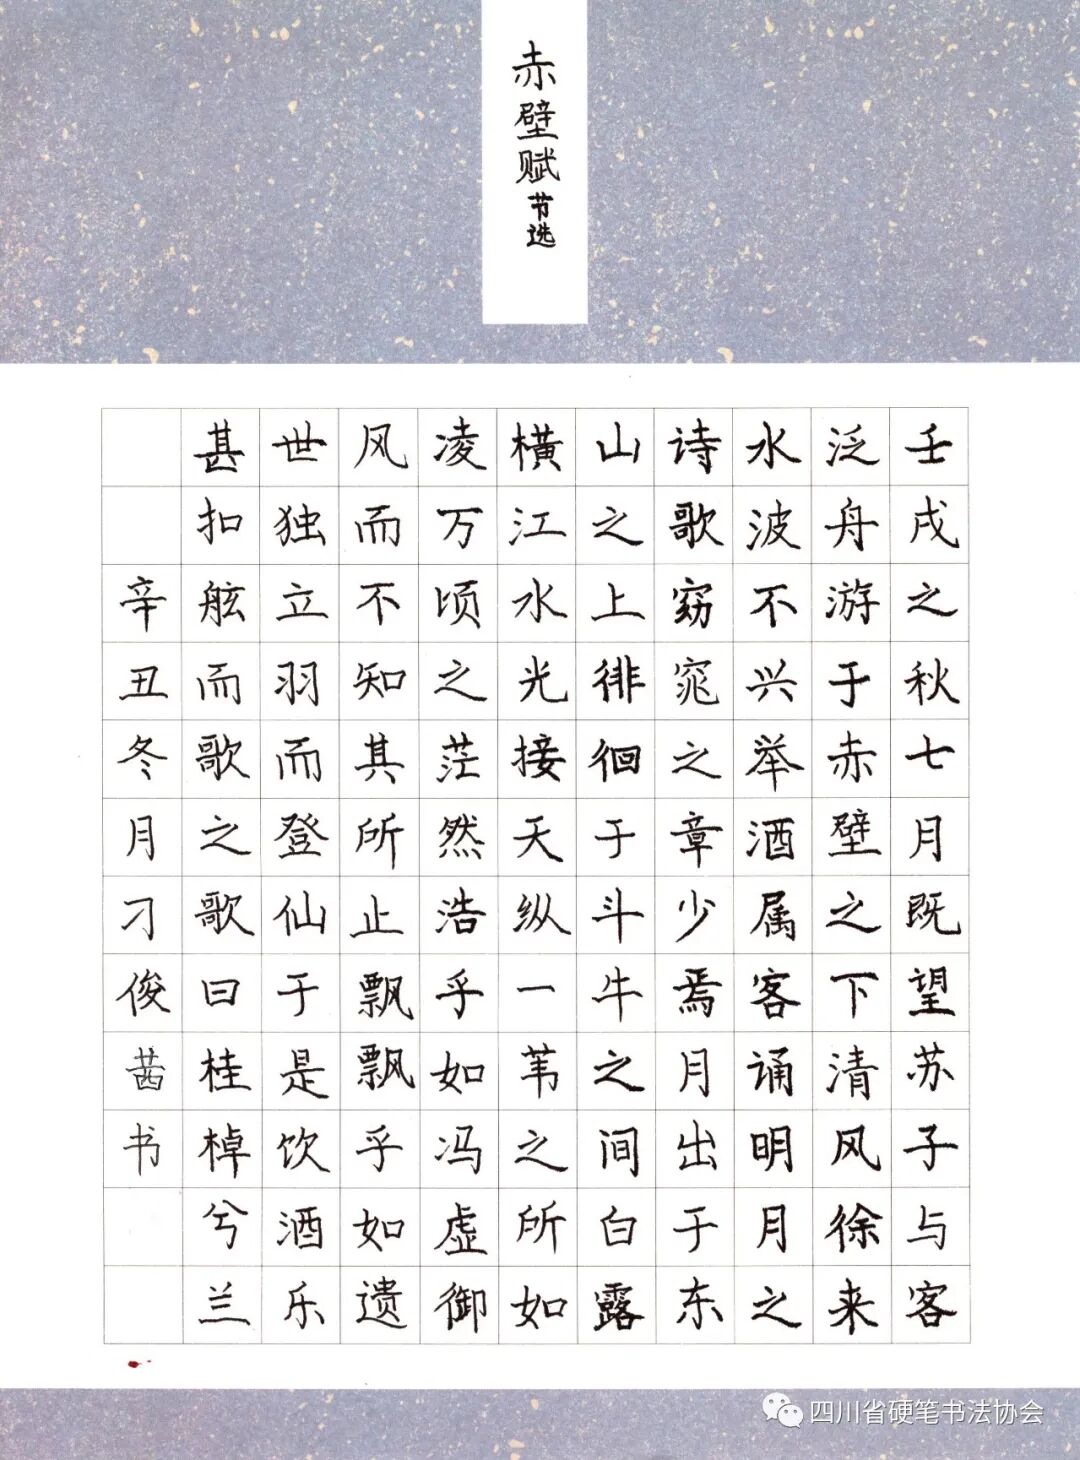 赤壁赋节选
壬戌之秋七月既望苏子与客
泛舟游于赤壁之下清风徐来
水波不兴举酒属客诵明月之
诗歌窈窕之章少焉月出于东
山之上徘徊于斗牛之间白露
横江水光接天纵一苇之所如
凌万顷之茫然浩乎如冯虚御
风而不知其所止飘飘乎如遗
世独立羽而登仙于是饮酒乐
甚扣舷而歌之歌曰桂棹兮兰
辛丑冬月刁俊茜书
四川省硬笔书法协会